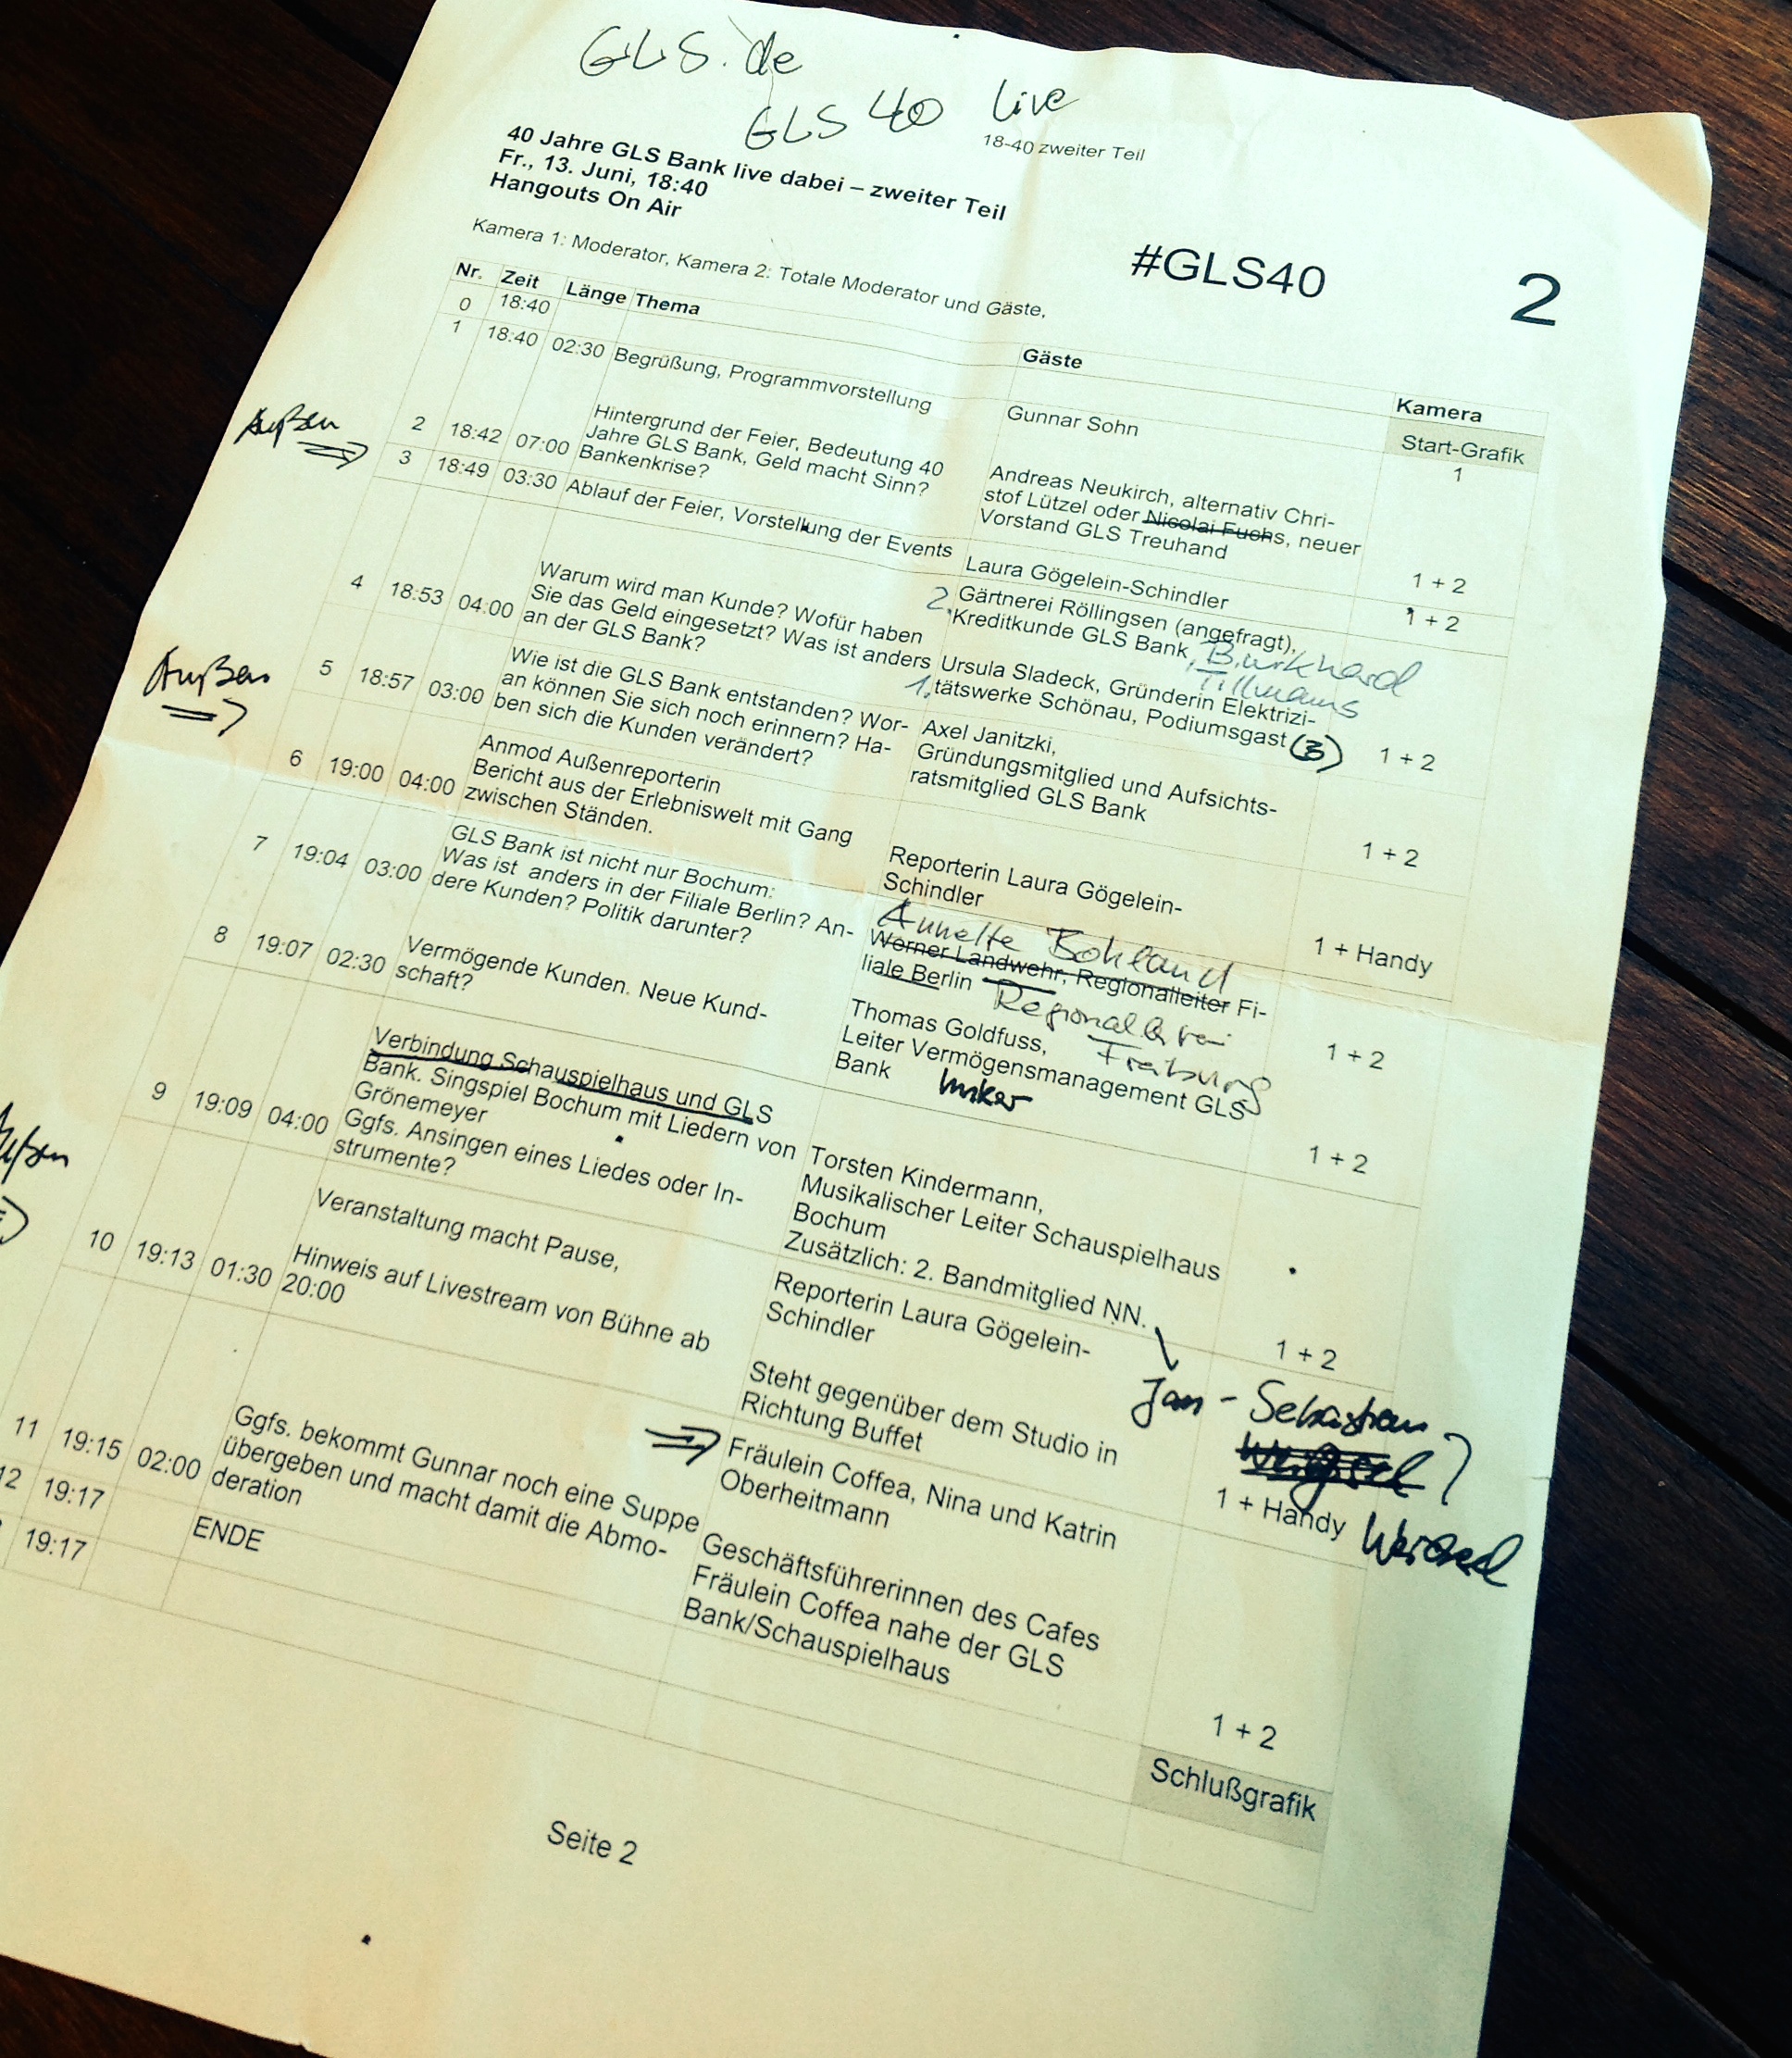 GLS.de
GLS 40 live
18-40 zweiter Teil
40 Jahre GLS Bank live dabei – zweiter Teil
Fr., 13. Juni, 18:40
Hangouts On Air
#GLS40
2
Kamera 1: Moderator, Kamera 2: Totale Moderator und Gäste,
Nr. Zeit Länge Thema Gäste Kamera
0 18:40 Start-Grafik
1 18:40 02:30 Begrüßung, Programmvorstellung Gunnar Sohn 1
Außen
2 18:42 07:00 Hintergrund der Feier, Bedeutung 40
Jahre GLS Bank, Geld macht Sinn?
Bankenkrise?
Andreas Neukirch, alternativ Chri-
stof Lützel oder Nicolai Fuchs, neuer
Vorstand GLS Treuhand
1 + 2
3 18:49 03:30 Ablauf der Feier, Vorstellung der Events Laura Gögelein-Schindler 1 + 2
4 18:53 04:00 Warum wird man Kunde? Wofür haben
Sie das Geld eingesetzt? Was ist anders
an der GLS Bank?
2. Gärtnerei Röllingsen (angefragt),
Kreditkunde GLS Bank, Burkhard
Tillmanns
Ursula Sladeck, Gründerin Elektrizi-
1. tätswerke Schönau, Podiumsgast (3)
1 + 2
Außen
5 18:57 03:00 Wie ist die GLS Bank entstanden? Wor-
an können Sie sich noch erinnern? Ha-
ben sich die Kunden verändert?
Axel Janitzki,
Gründungsmitglied und Aufsichts-
ratsmitglied GLS Bank
1 + 2
6 19:00 04:00 Anmod Außenreporterin
Bericht aus der Erlebniswelt mit Gang
zwischen Ständen.
Reporterin Laura Gögelein-
Schindler
1 + Handy
7 19:04 03:00 GLS Bank ist nicht nur Bochum:
Was ist anders in der Filiale Berlin? An-
dere Kunden? Politik darunter?
Annette Bohland
Werner Landwehr, Regionalleiter Fi-
liale Berlin
Freiburg
1 + 2
8 19:07 02:30 Vermögende Kunden. Neue Kund-
schaft?
Thomas Goldfuss,
Leiter Vermögensmanagement GLS
Bank Imker
1 + 2
9 19:09 04:00 Verbindung Schauspielhaus und GLS
Bank. Singspiel Bochum mit Liedern von
Grönemeyer
Ggfs. Ansingen eines Liedes oder In-
strumente?
Torsten Kindermann,
Musikalischer Leiter Schauspielhaus
Bochum
Zusätzlich: 2. Bandmitglied NN.
1 + 2
Jan-Sebastian
Weichsel
10 19:13 01:30 Veranstaltung macht Pause,
Hinweis auf Livestream von Bühne ab
20:00
Reporterin Laura Gögelein-
Schindler
Steht gegenüber dem Studio in
Richtung Buffet
1 + Handy
11 19:15 02:00 Ggfs. bekommt Gunnar noch eine Suppe
übergeben und macht damit die Abmo-
deration
Fräulein Coffea, Nina und Katrin
Oberheitmann
Geschäftsführerinnen des Cafes
Fräulein Coffea nahe der GLS
Bank/Schauspielhaus
1 + 2
12 19:17 ENDE Schlußgrafik
19:17
Seite 2